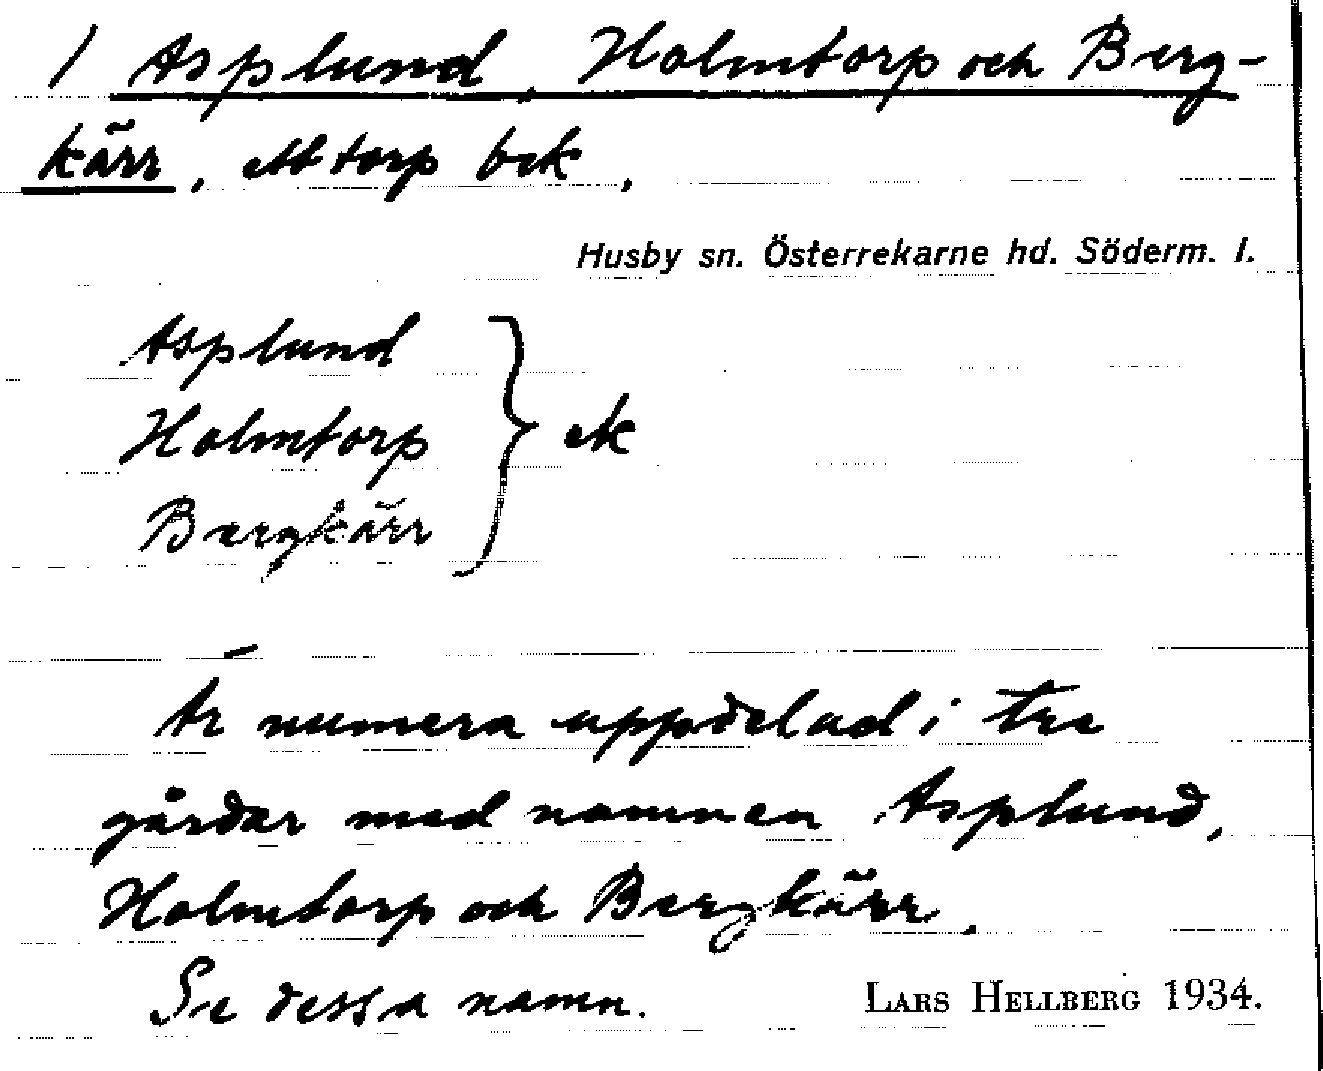 / Asplund, Holmtorp och Berg-
kärr, ett torp bek,
Husby sn. Österrekarne hd. Söderm. l.
Asplund
Holmtorp } ek
Bergkärr
Är numera uppdelad i tre
gårdar med namnen Asplund,
Holmtorp och Bergkärr.
Se dessa namn. LARS HELLBERG 1934.